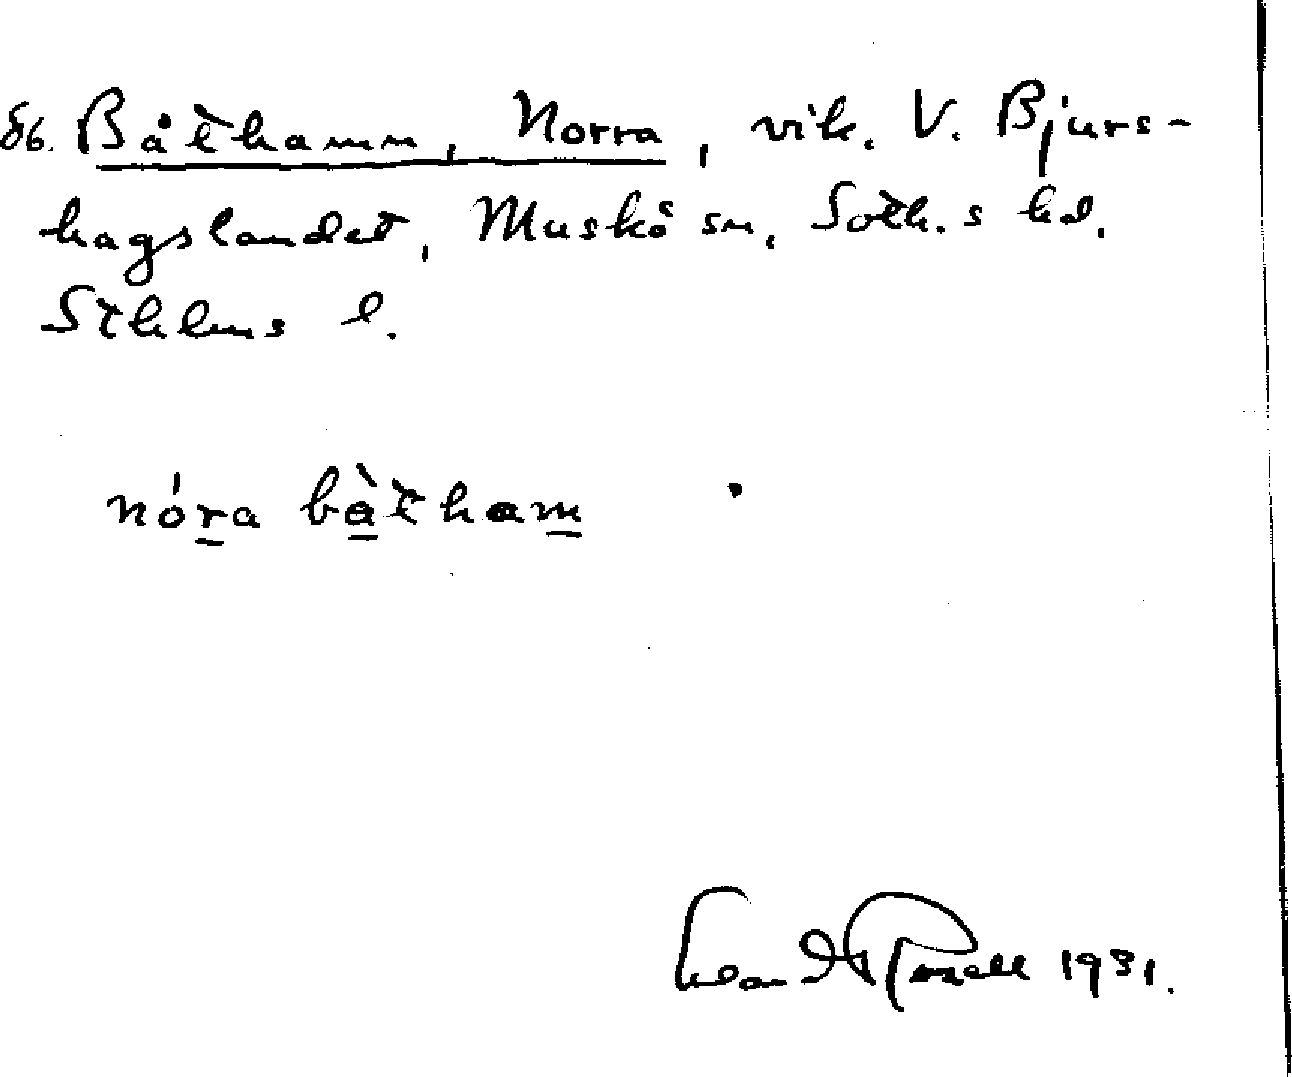 86. Båthamn, Norra, vik. V. Bjurs-
hagslandet, Muskö sn, Soth.s hd.
Sthlms l.
nóra bàtham
1931.